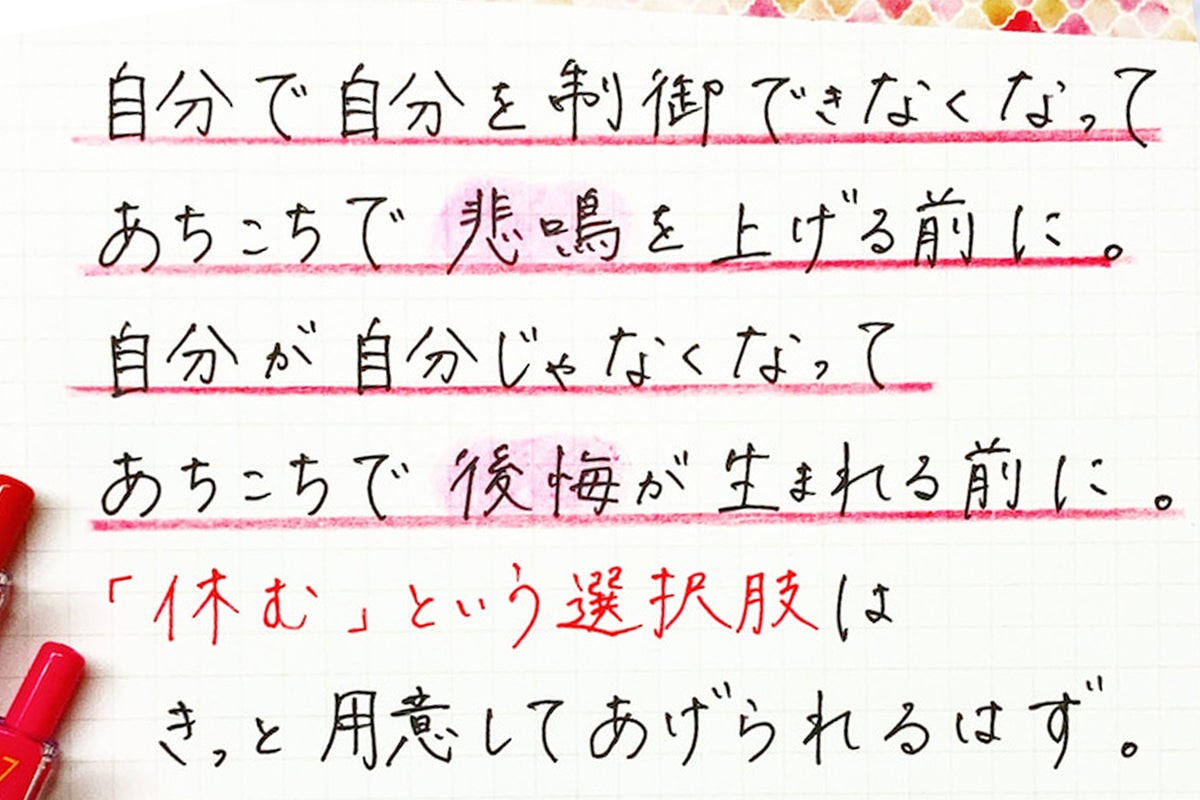 自分で自分を制御できなくなって
あちこちで悲鳴を上げる前に。
自分が自分じゃなくなって
あちこちで後悔が生まれる前に。
「休む」という選択肢は
きっと用意してあげられるはず。
7